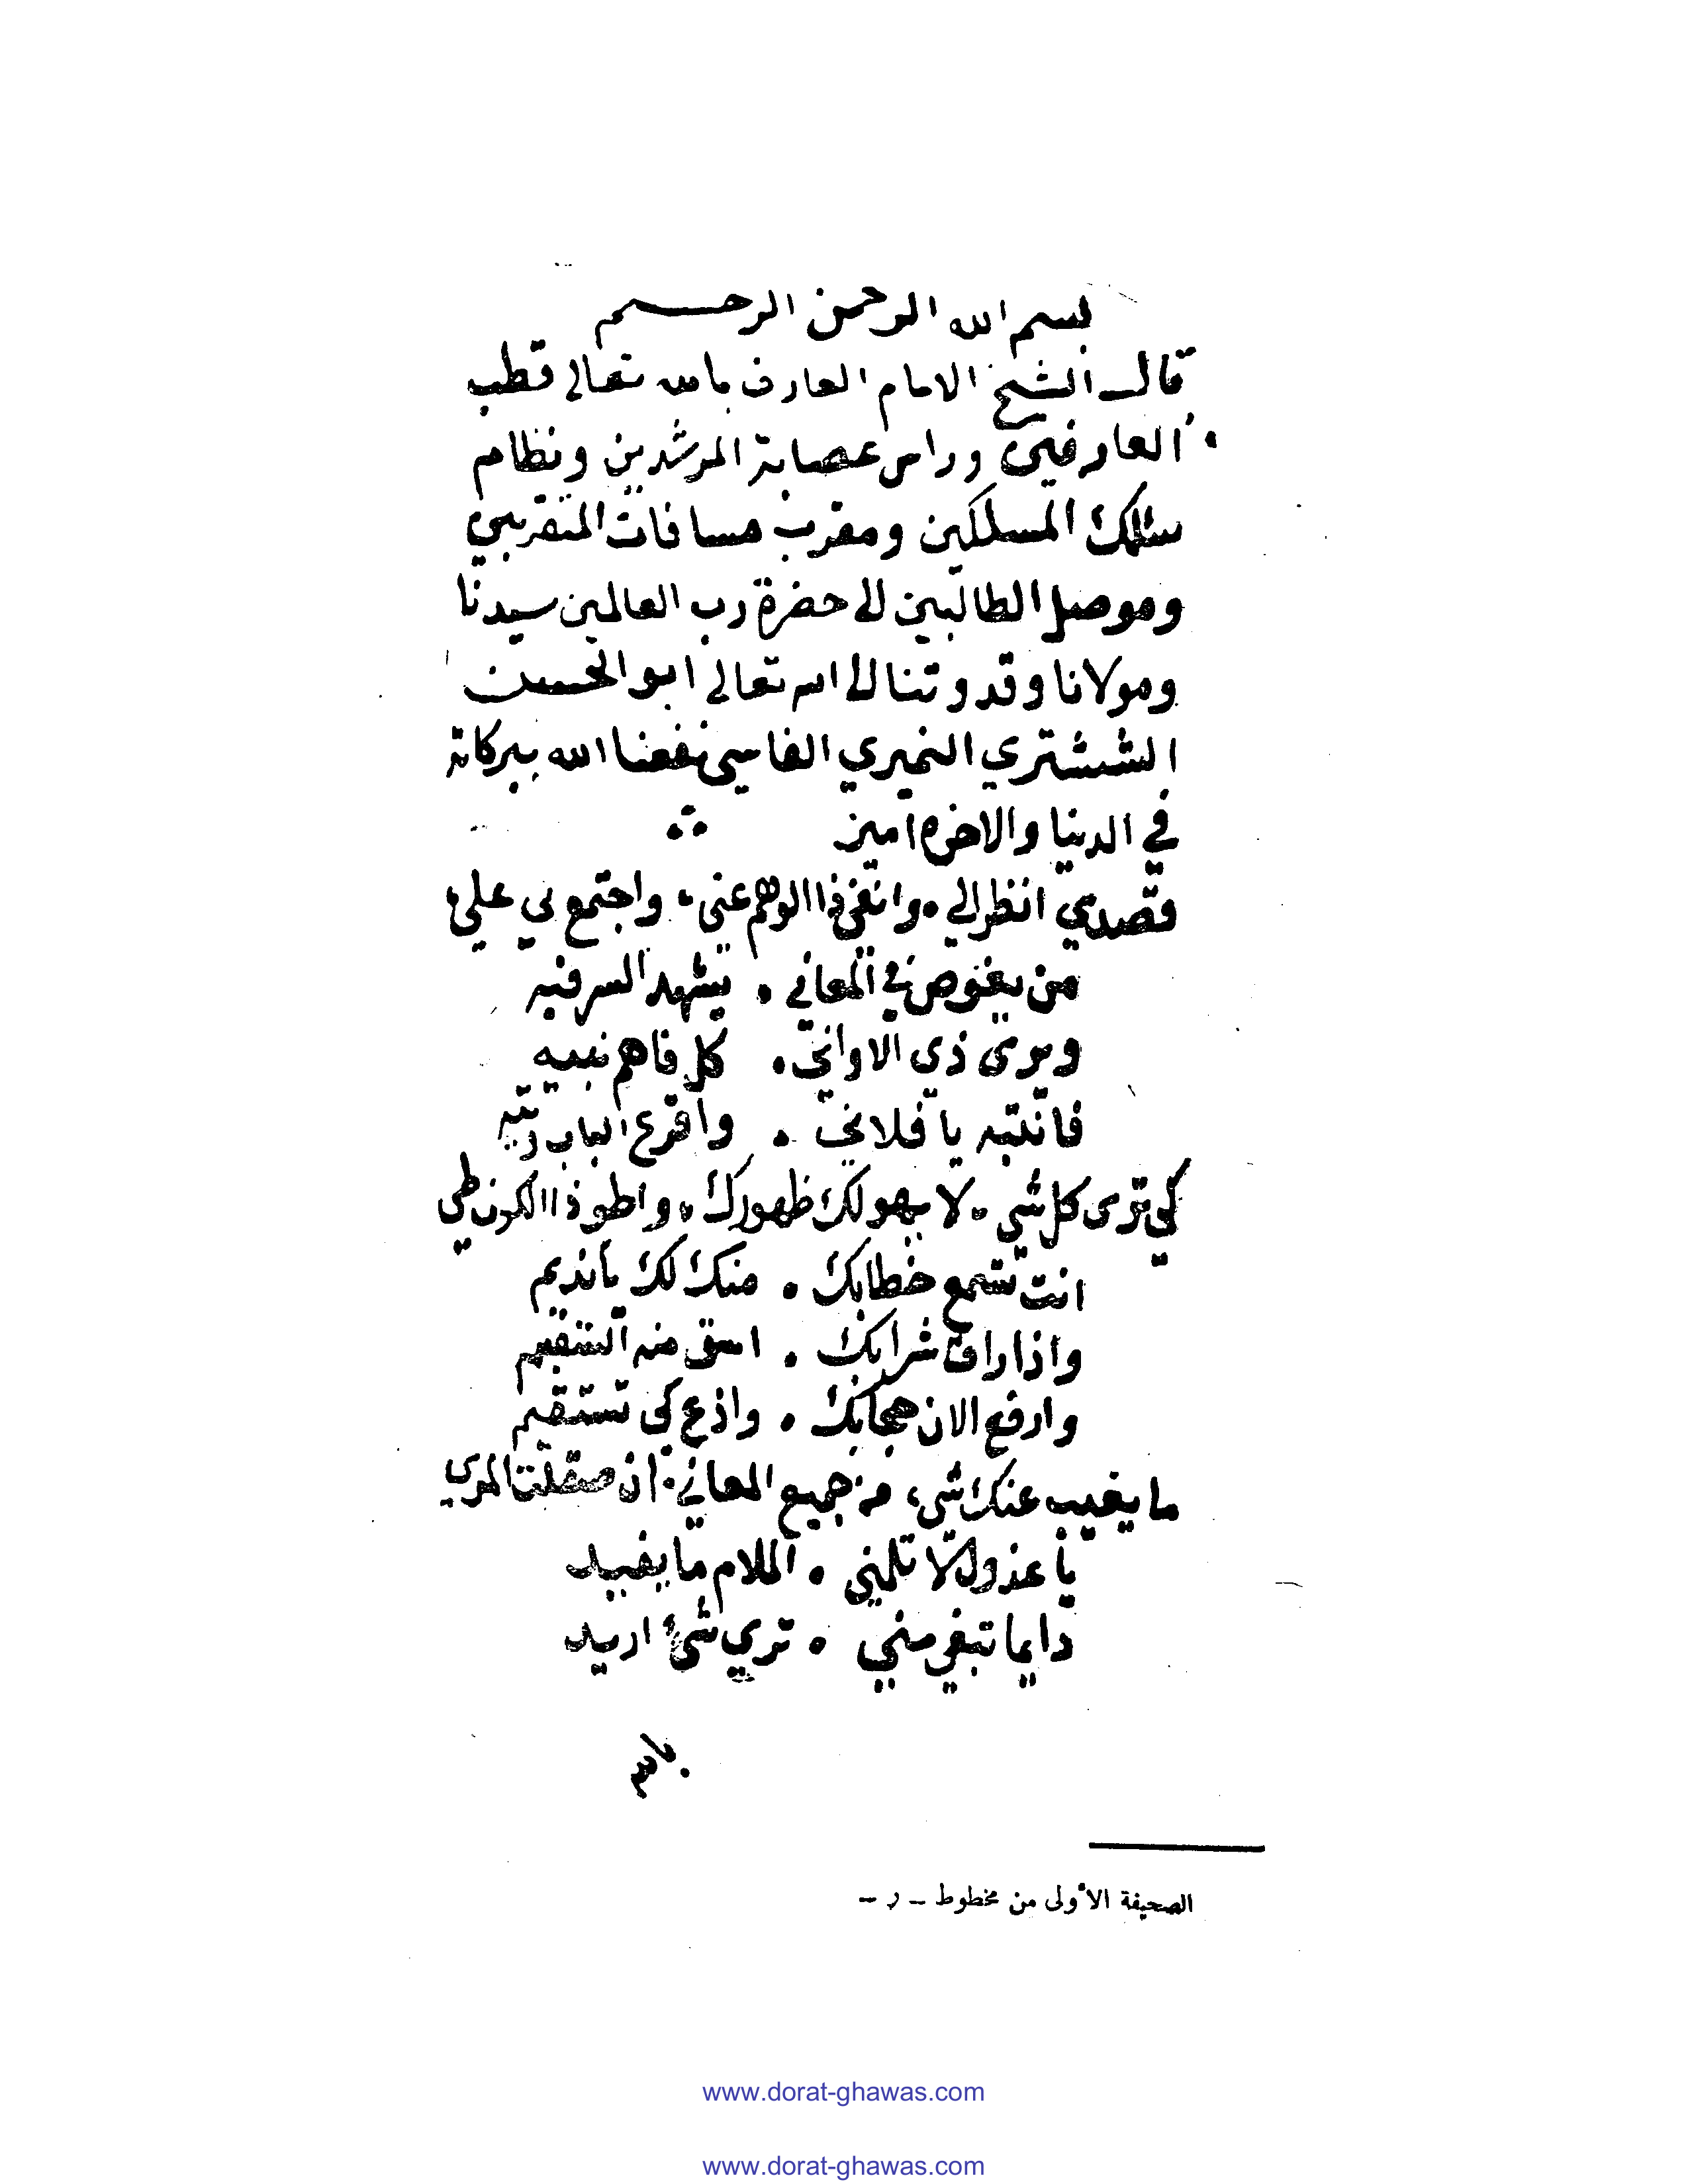 بسم الله الرحمن الرحيم
قال الشيخ الامام العارف بالله تعالى قطب
العارفين وراس عصابة المرشدين ونظام
سلك المسلكين ومقرب مسافات المتقربين
وموصل الطالبين الى حضرة رب العالمين سيدنا
ومولانا وقدوتنا الى الله تعالى ابو الحسن
الششتري النميري الفاسي نفعنا الله ببركاته
في الدنيا والاخره امين
قصدي انظر الي • وانفي ذا الوهم عني • واجتمع بي علي
من يغوص في المعاني • يشهد السر فيه
ويرى ذي الاواني • كل فاهم نبيه
فانتبه يا فلاني • واقرع الباب
كي ترى كل شي • لا يهولك ظهورك • واطو ذا الكون طي
انت تسمع خطابك • منك لك يا نديم
واذا راق شرابك • اسق منه السقيم
وارفع الان حجابك • كى تستقيم
ما يغيب عنك شي • من جميع المعاني • ان صقلت المري
يا عذولا لا تلمني • الملام ما يفيد
دايما تبغى مني • تري شئ اريد
الصحيفة الأولى من مخطوط ـ ر ـ
www.dorat-ghawas.com
www.dorat-ghawas.com